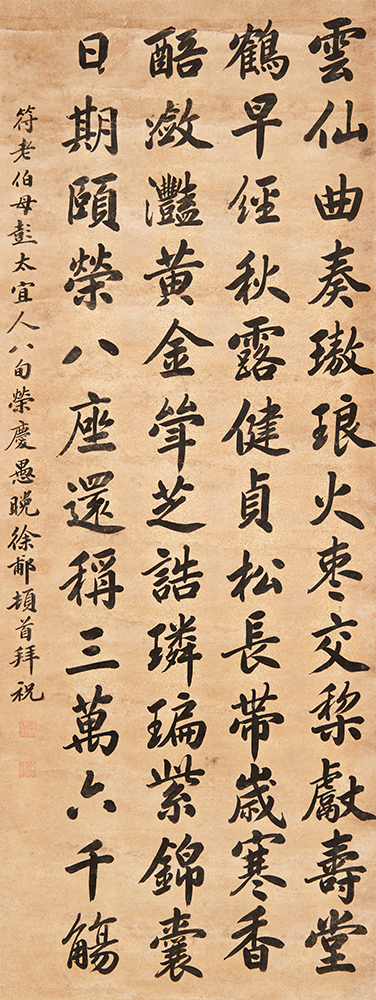 雲仙曲奏璈琅火棗交棃獻壽堂
鶴早經秋露健貞松長帶歲寒香
醅瀲灩黃金斝芝誥璘瑸紫錦囊
日期頤榮八座還稱三萬六千觴
符老伯母彭太宜人八旬榮慶愚晚徐郙頓首拜祝